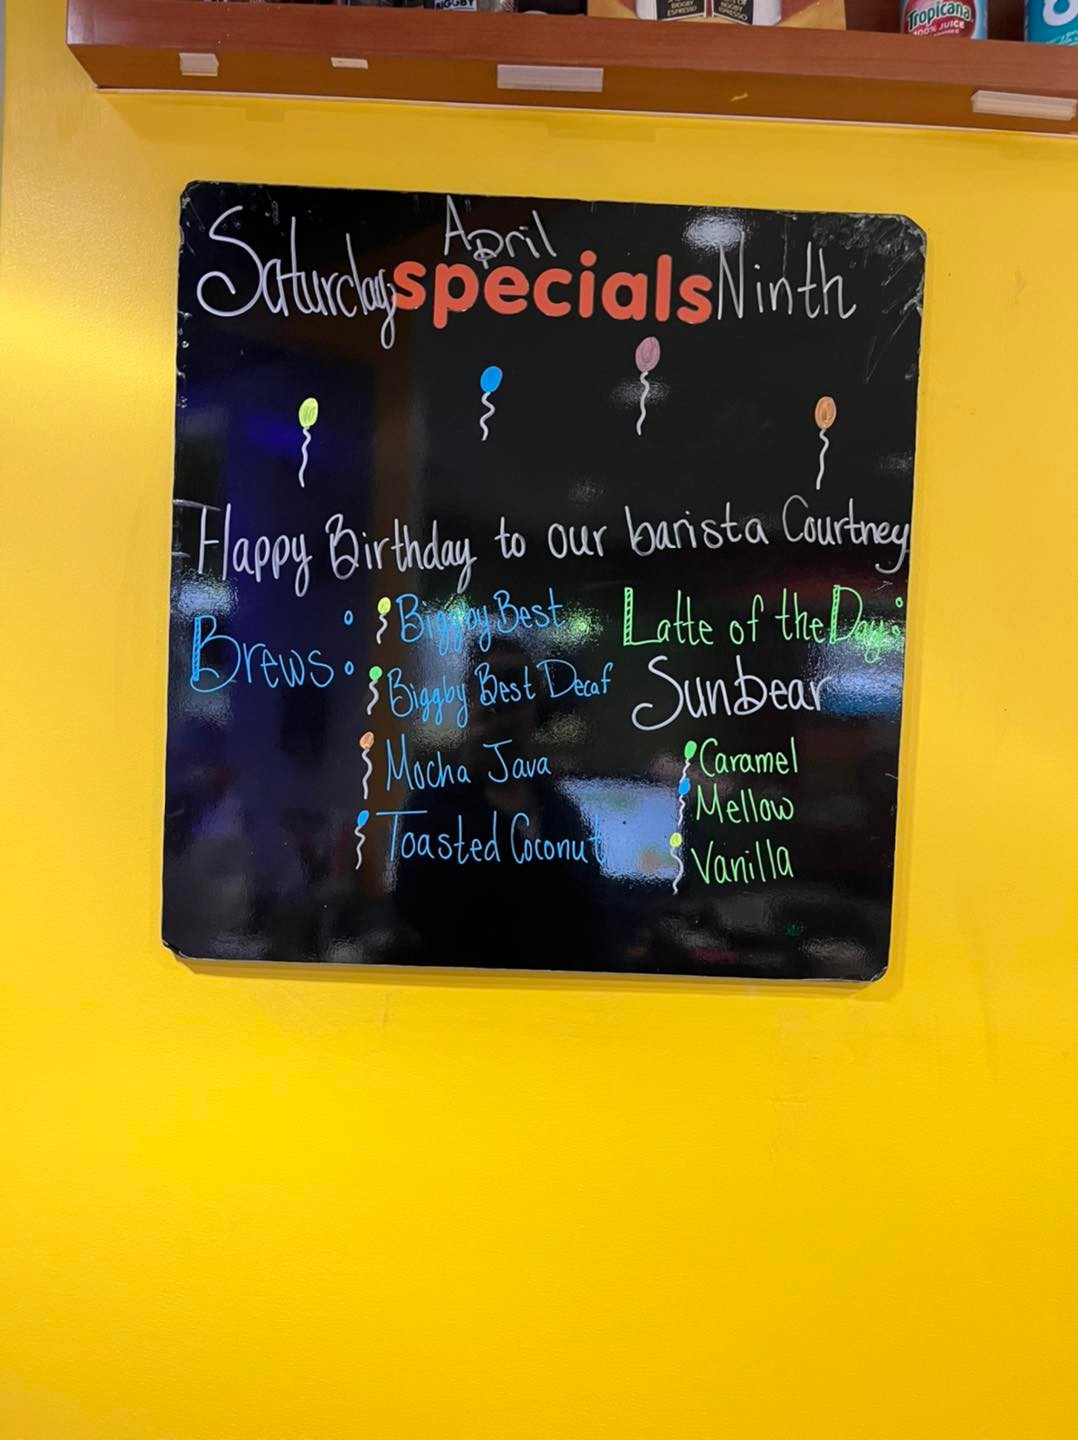 BIGGBY
BIGGBY
ESPRESSO
BIGGBY
ESPRESSO
Tropicana
100% JUICE
April
Saturday specials Ninth
Happy Birthday to our barista Courtney
Brews:
Biggby Best
Biggby Best Decaf
Mocha Java
Toasted Coconut
Latte of the Day:
Sunbear
Caramel
Mellow
Vanilla